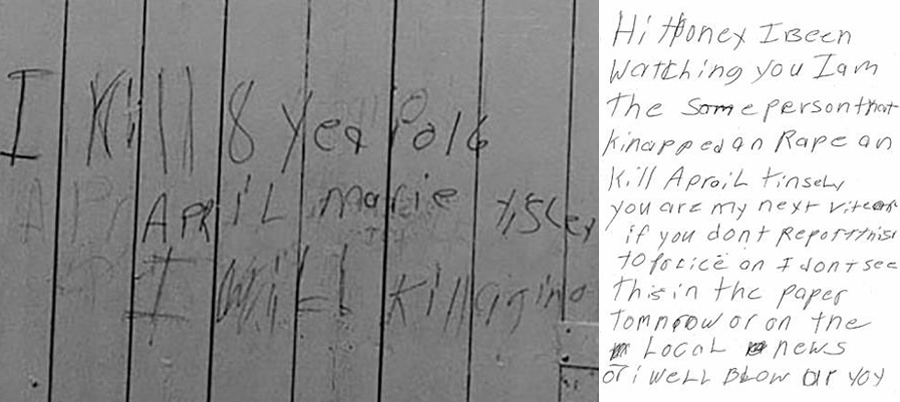 I Kill 8 year old
APRIL marie Tisley
I Will Kill agin
Hi Honey I Been
WatChing you I am
the Same person that
kinapped an Rape an
Kill Aproil tinsely
you are my next vitcam
if you dont Report this
to police an I dont see
this in the paper
tomorrow or on the
Local news
or i well BLow